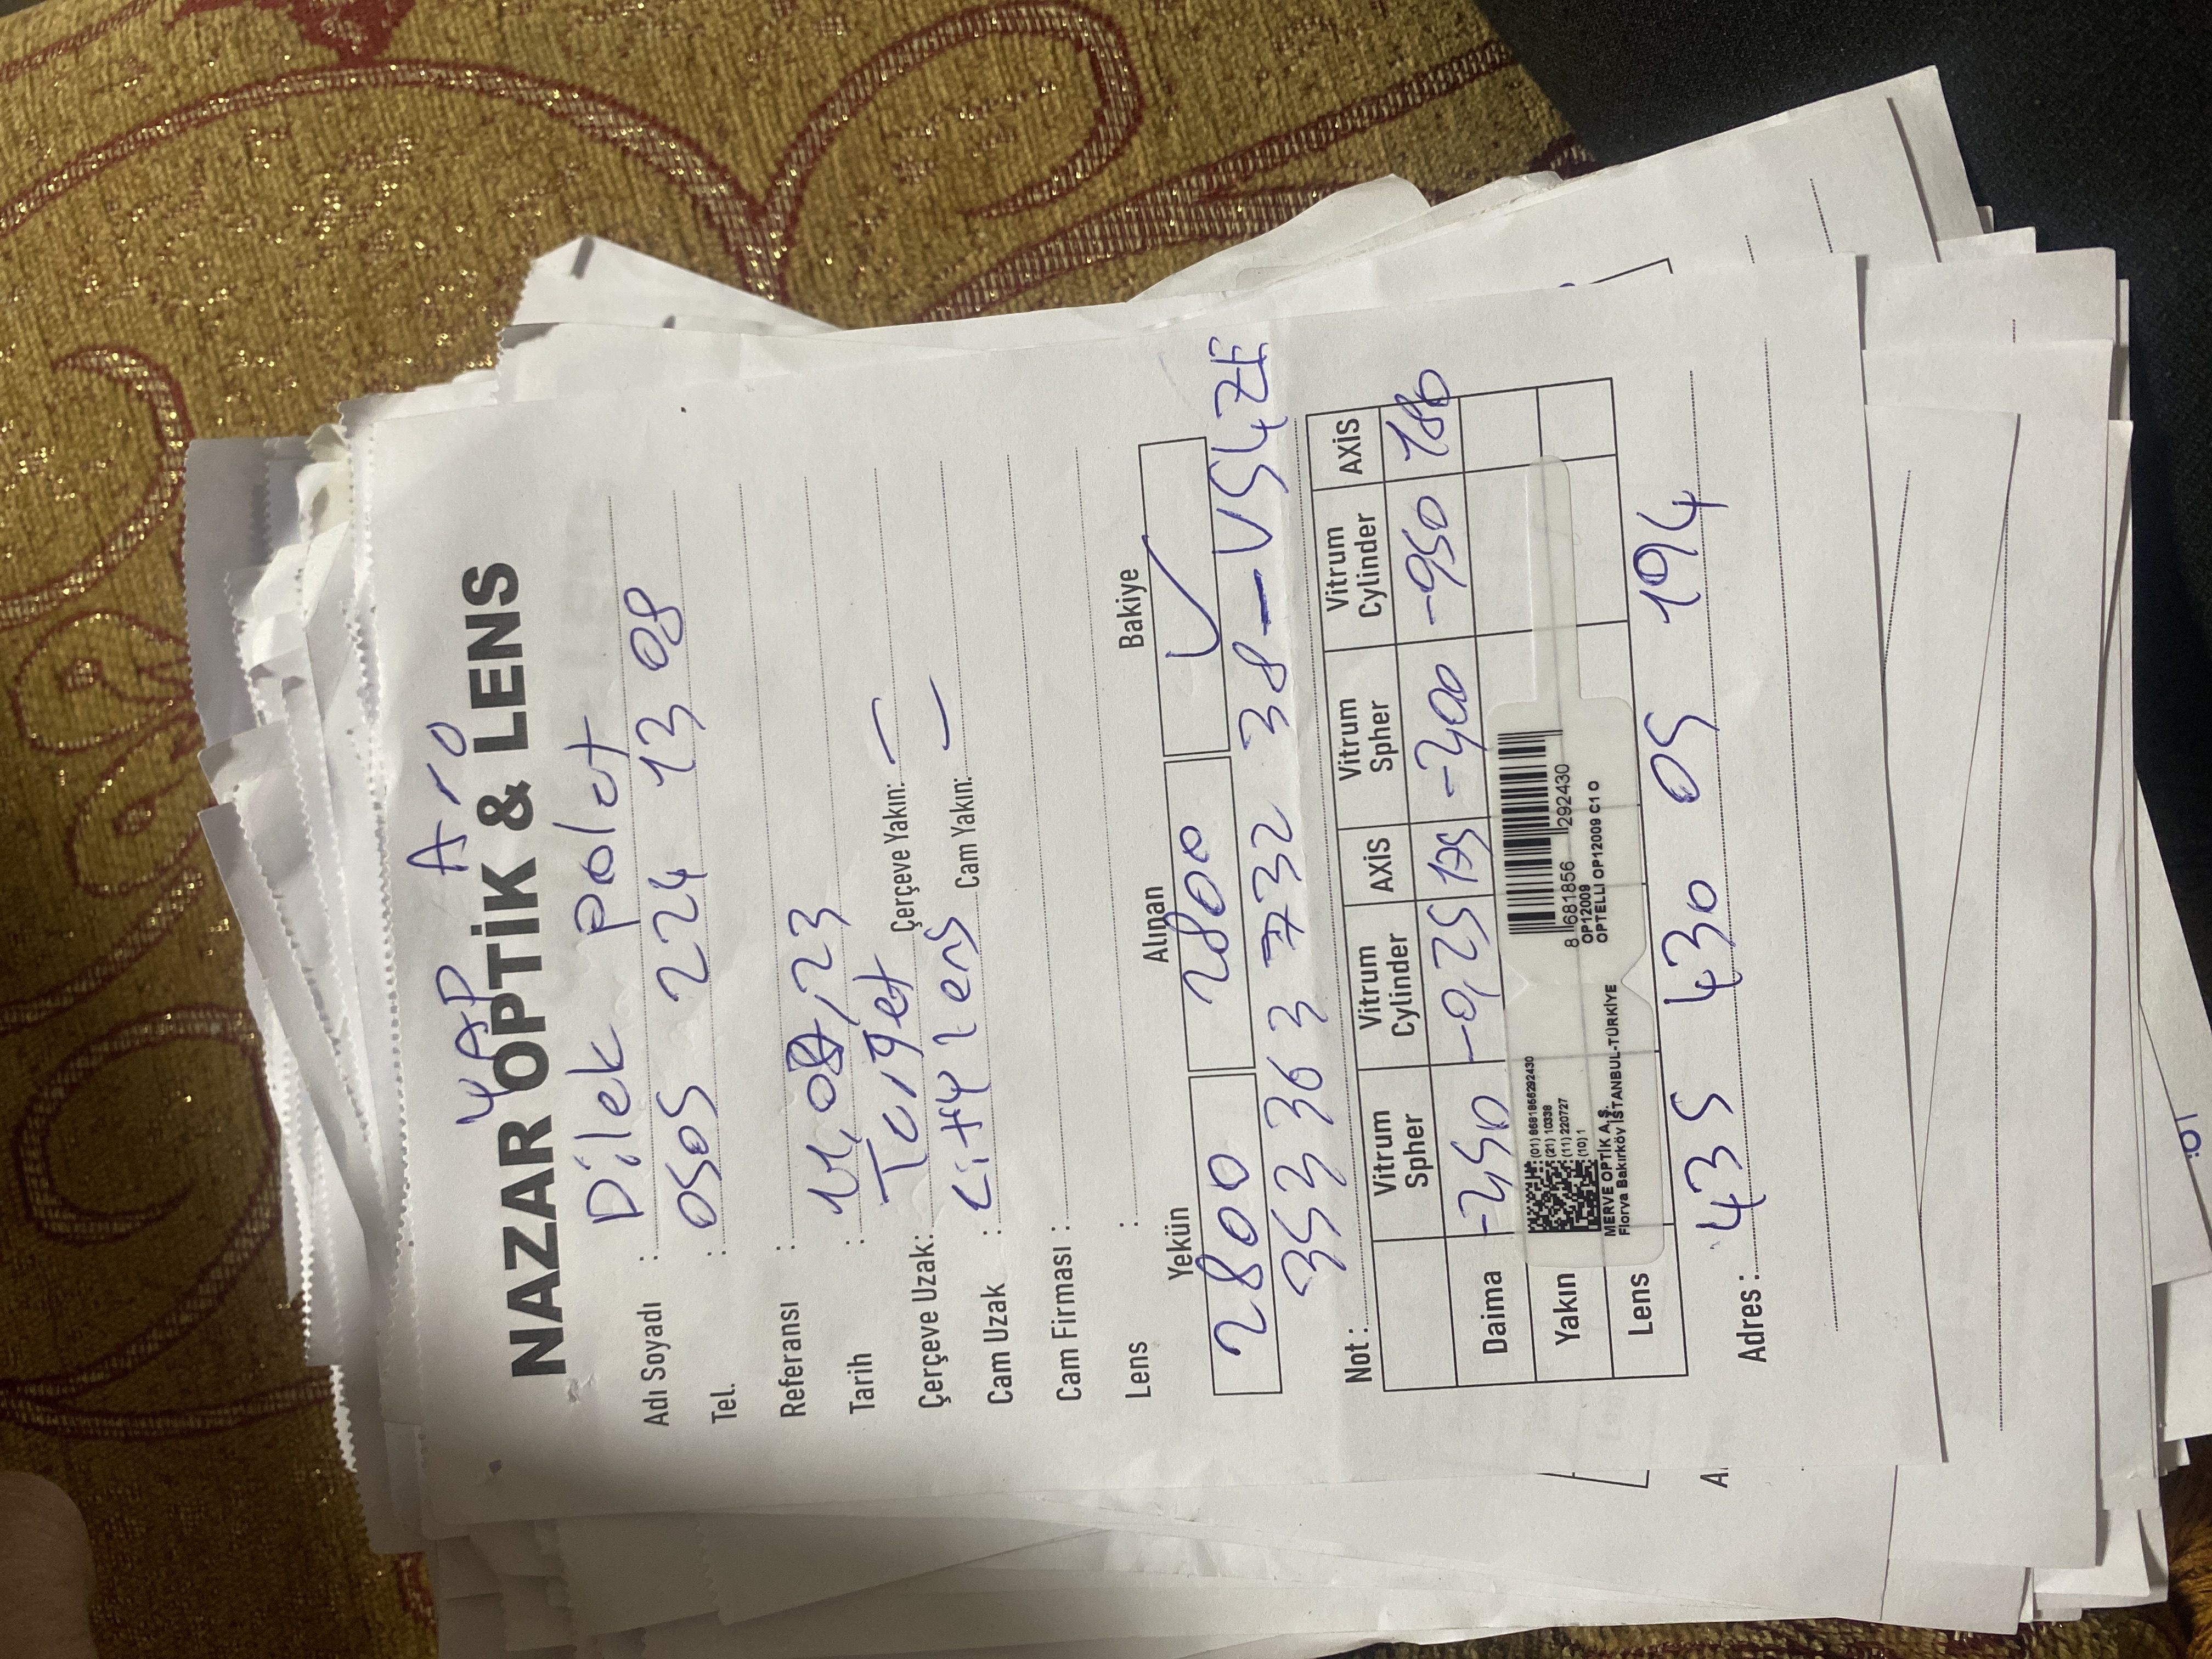 YAP Ara
NAZAR OPTİK & LENS
Adı Soyadı : Dilek polat
Tel. : 0505 224 13 08
Referansı :
Tarih : 11,08,23
Çerçeve Uzak: Target Çerçeve Yakın: —
Cam Uzak : city lens Cam Yakın: —
Cam Firması :
Lens :
Yekün Alınan Bakiye
2800 2800 ✓
353 363 732 38-VS4ZE
Not :
Vitrum Spher Vitrum Cylinder AXİS Vitrum Spher Vitrum Cylinder AXİS
Daima -2,50 -0,25 175 -2,00 -0,50 180
Yakın
Lens
(01) 8681856292430
(21) 10338
(11) 220727
(10) 1
MERVE OPTİK A.Ş.
Florya Bakırköy İSTANBUL-TÜRKİYE
8 681856 292430
OP12009
OPTELLI OP12009 C1 O
Adres : 435 430 05 194